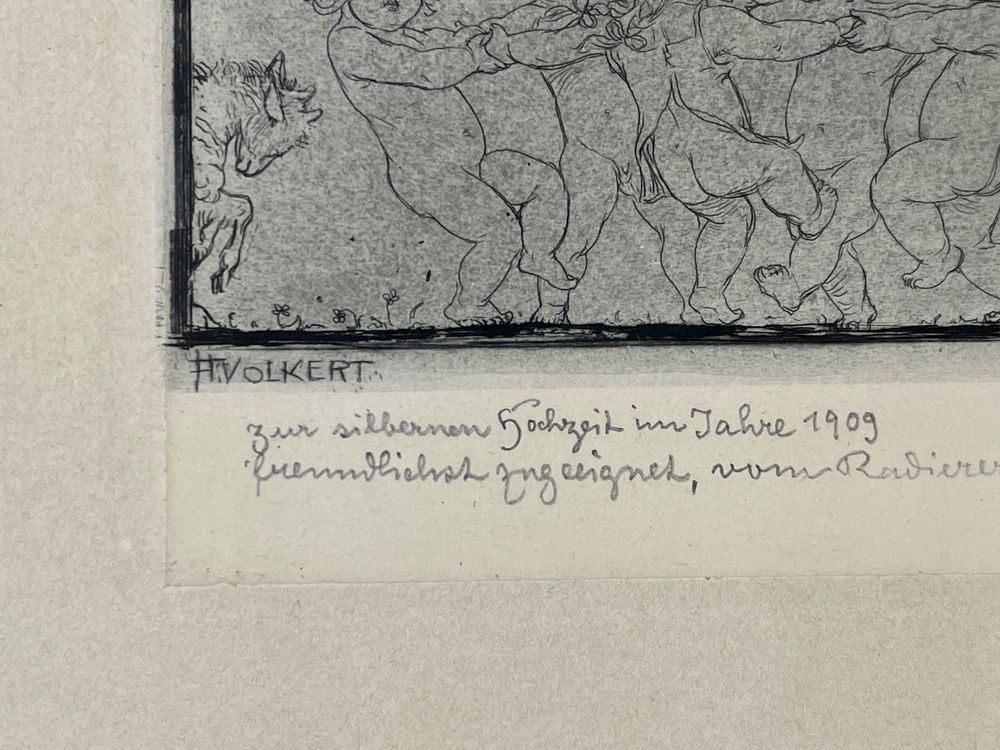 H.VOLKERT.
zur silbernen Hochzeit im Jahre 1909
freundlichst zugeeignet, vom Radierer